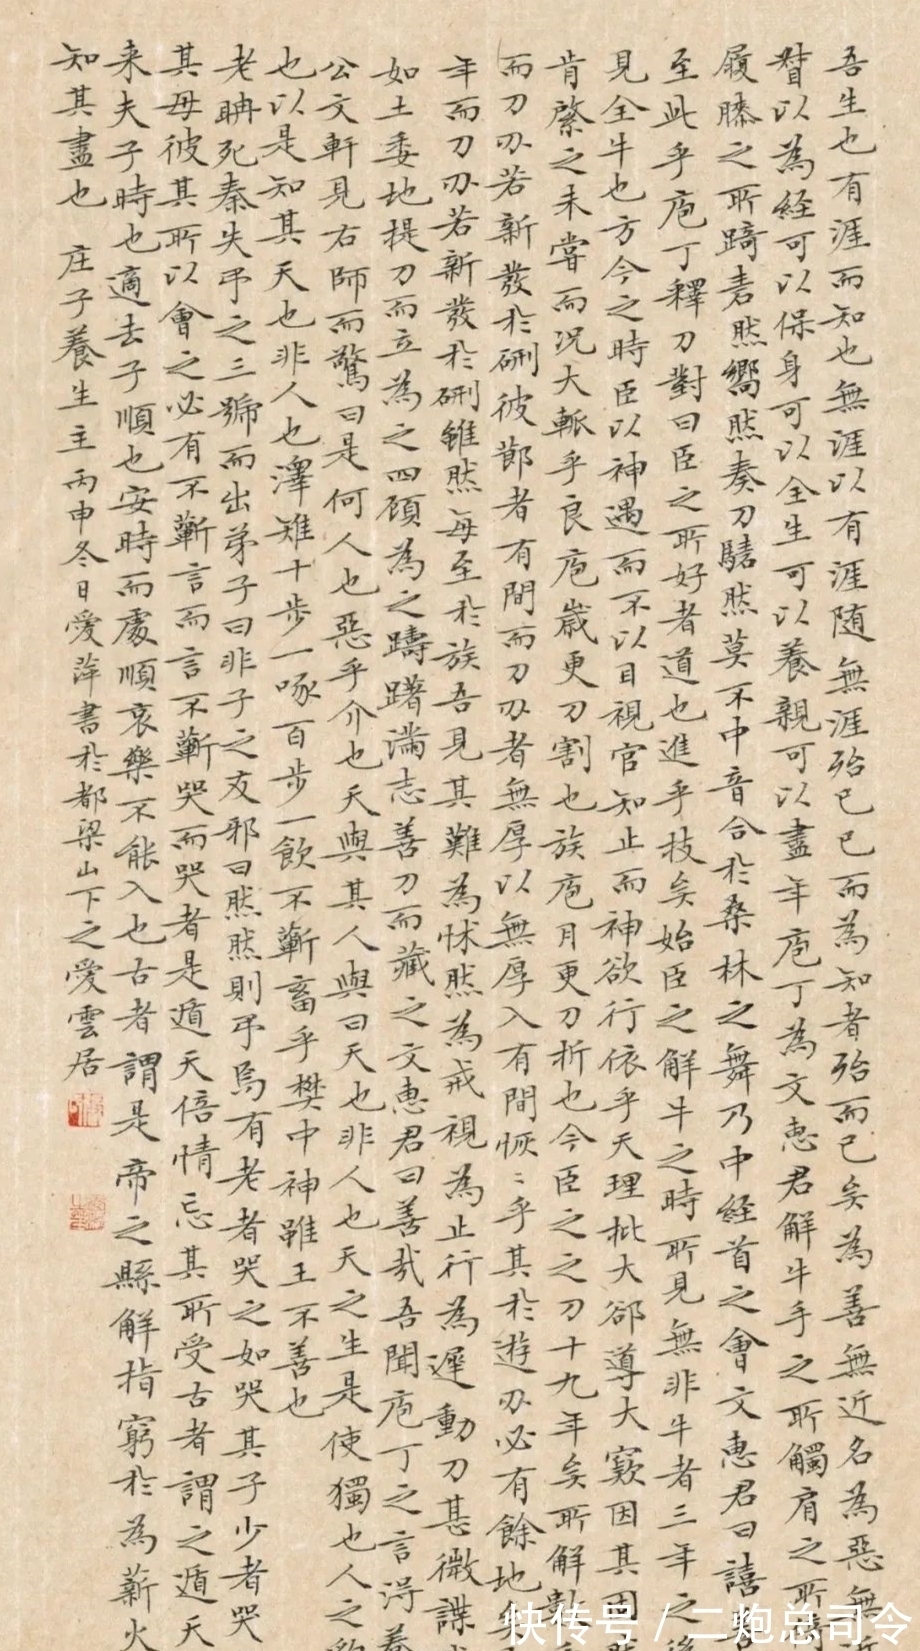 吾生也有涯而知也無涯以有涯随無涯殆已已而為知者殆而已矣為善無近名為惡無
督以為経可以保身可以全生可以養親可以盡年庖丁為文恵君解牛手之所觸肩之所
履膝之所踦砉然嚮然奏刀騞然莫不中音合於桑林之舞乃中経首之會文恵君曰譆
至此乎庖丁釋刀對曰臣之所好者道也進乎技矣始臣之解牛之時所見無非牛者三年之後
見全牛也方今之時臣以神遇而不以目視官知止而神欲行依乎天理批大郤導大窾因其固
肯綮之未嘗而況大軱乎良庖歲更刀割也族庖月更刀折也今臣之之刀十九年矣所解數
而刀刃若新發於硎彼節者有間而刀刃者無厚以無厚入有間恢〻乎其於遊刃必有餘地矣
年而刀刃若新發於硎雖然每至於族吾見其難為怵然為戒視為止行為遲動刀甚微謋
如土委地提刀而立為之四顧為之躊躇滿志善刀而藏之文惠君曰善哉吾聞庖丁之言淂養
公文軒見右師而驚曰是何人也惡乎介也天與其人與曰天也非人也天之生是使獨也人之
也以是知其天也非人也澤雉十步一啄百步一飲不蘄畜乎樊中神雖王不善也
老聃死秦失弔之三號而出弟子曰非子之友邪曰然然則弔焉有老者哭之如哭其子少者哭
其母彼其所以會之必有不蘄言而言不蘄哭而哭者是遁天倍情忘其所受古者謂之遁天
来夫子時也適去子順也安時而處順哀樂不能入也古者謂是帝之縣解指窮於為薪火
知其盡也 庄子養生主丙申冬日愛萍書於都梁山下之愛雲居
快传号 / 二炮总司令